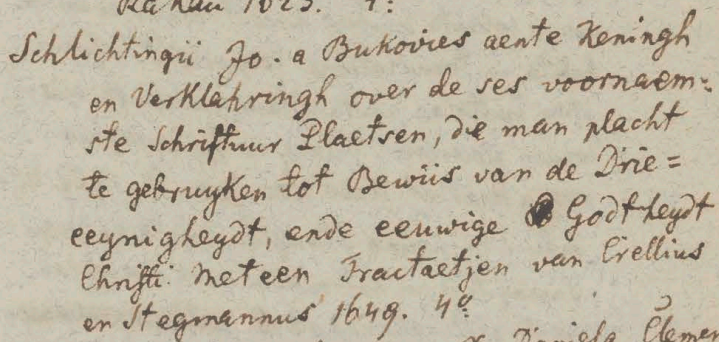 Rakau 1625. 4:
Schlichtingii Jo. a Bukovies aente Keningh
en Verklahringh over de ses voornaem=
ste Schriftuur Plaetsen, die man placht
te gebruyken tot Bewiis van de Drie=
eeynigheydt, ende eeuwige Godtheydt
Christi. Met een Tractaetjen van Crellius
en Stegmannus 1649. 4º
Daniela Clemen